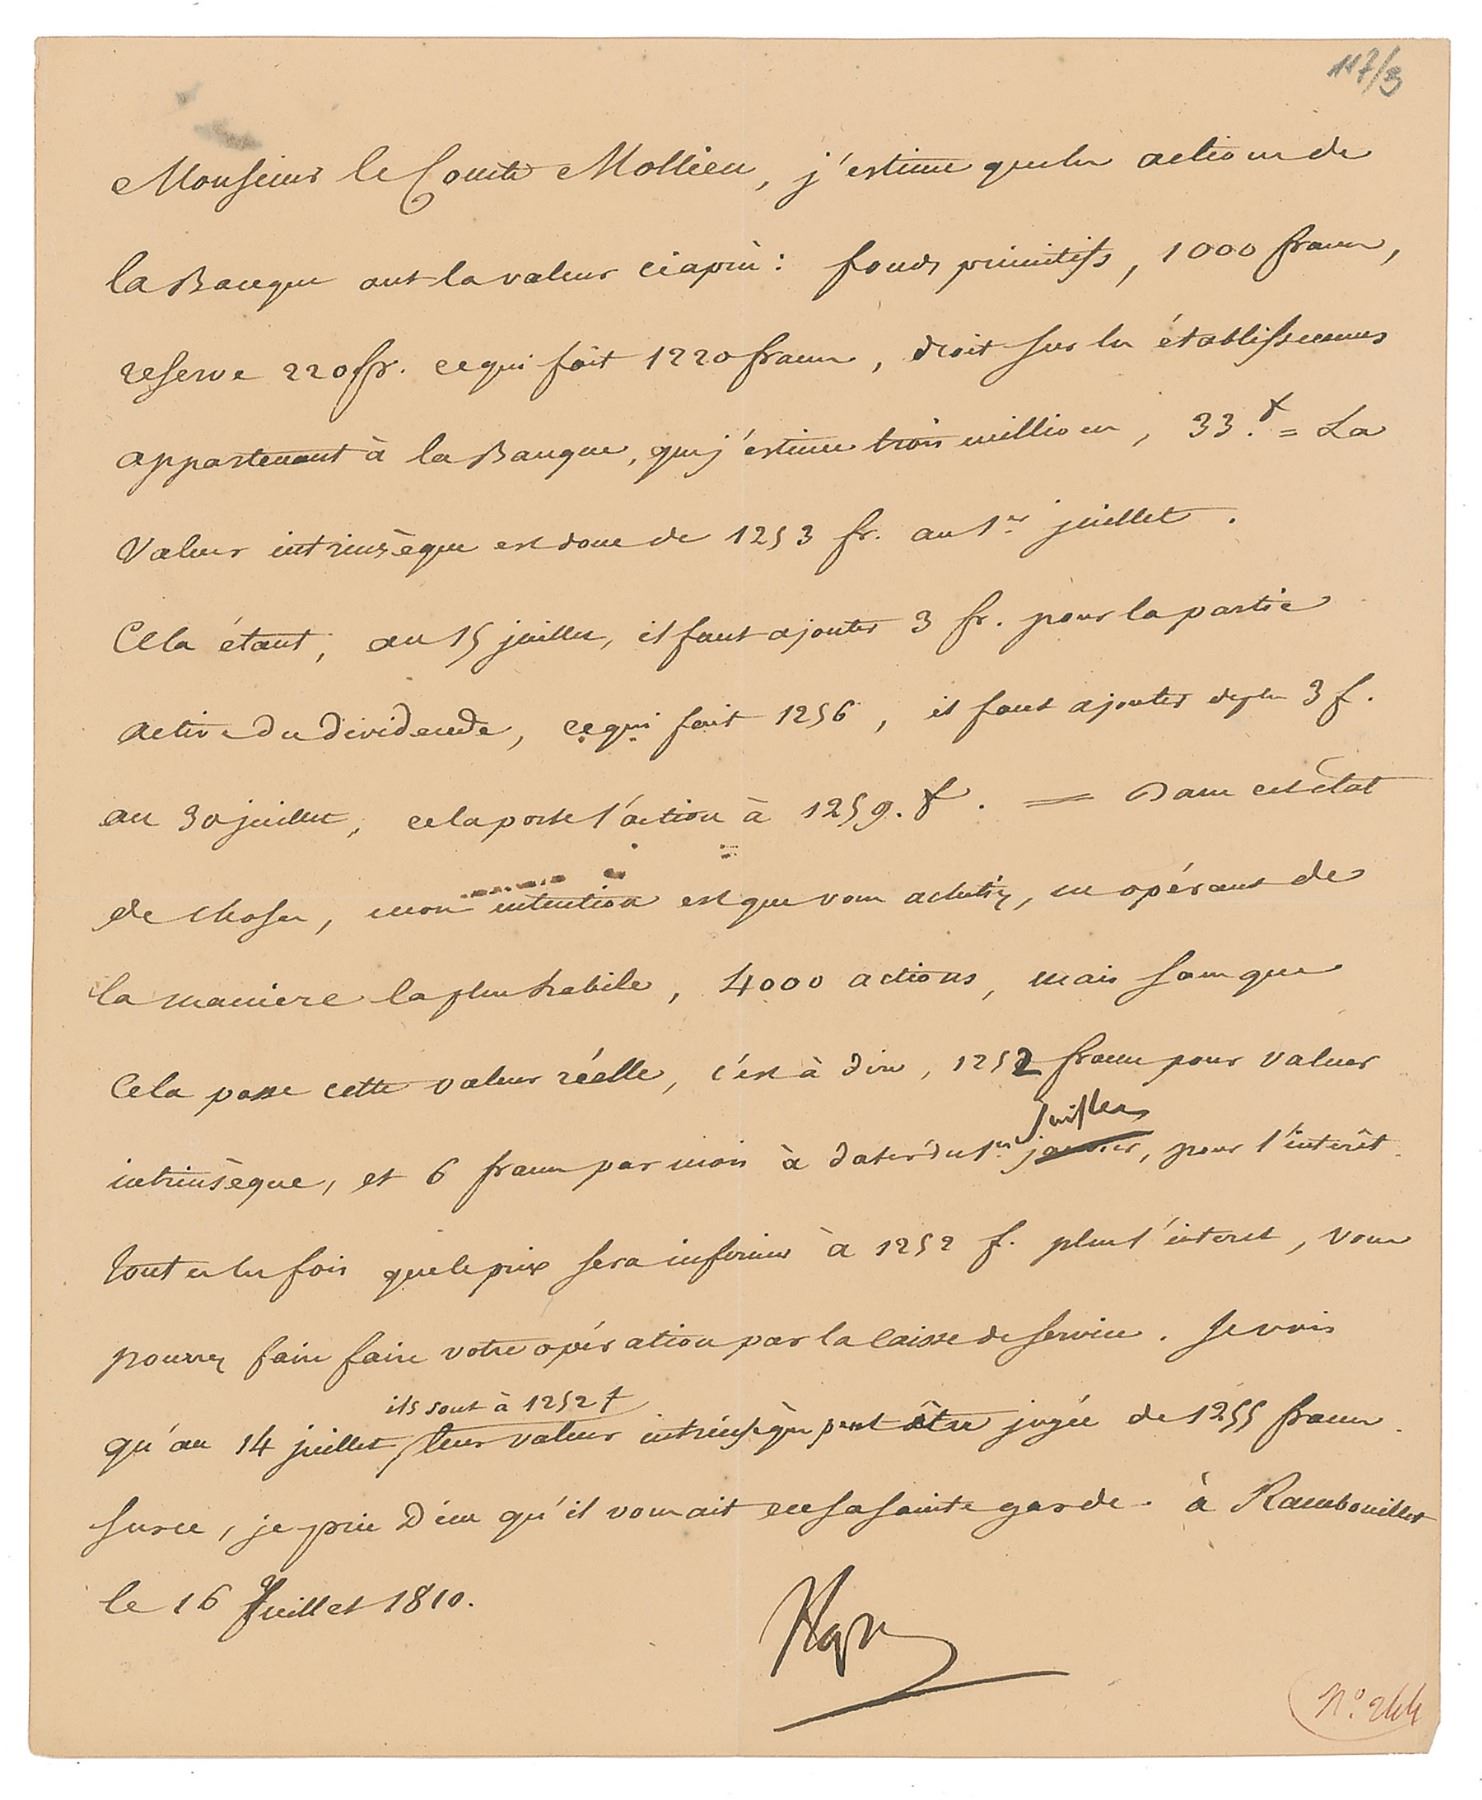 117/3
Monsieur le Comte Mollien, j'estime que les actions de
la Banque ont la valeur ci après : fonds primitifs, 1000 francs,
reserve 220 fr. ce qui fait 1220 francs, droit sur les établissemens
appartenant à la Banque, que j'estime trois millions, 33. f = La
Valeur intrinsèque est donc de 1253 fr. au 1er juillet.
Cela étant, au 15 juillet, il faut ajouter 3 fr. pour la partie
active du dividende, ce qui fait 1256, il faut ajouter de plus 3 f.
au 30 juillet, cela porte l'action à 1259. f. = Dans cet état
de choses, mon intention est que vous achetiez, en opérant de
la maniere la plus habile, 4000 actions, mais sans que
Cela passe cette valeur réelle, c'est à dire, 1252 francs pour valeur
Juillet
intrinsèque, et 6 francs par mois à dater du 1er janvier, pour l'intérêt.
Toutes les fois que le prix sera inférieur à 1252 f. plus l'interet, vous
pourrez faire faire votre opération par la Caisse de service. Je vois
ils sont à 1252 f
qu'au 14 juillet leur valeur intrinsèque peut être jugée de 1255 francs.
Sur ce, je prie Dieu qu'il vous ait en sa sainte garde. à Rambouillet
le 16 Juillet 1810.
Np
N° 244